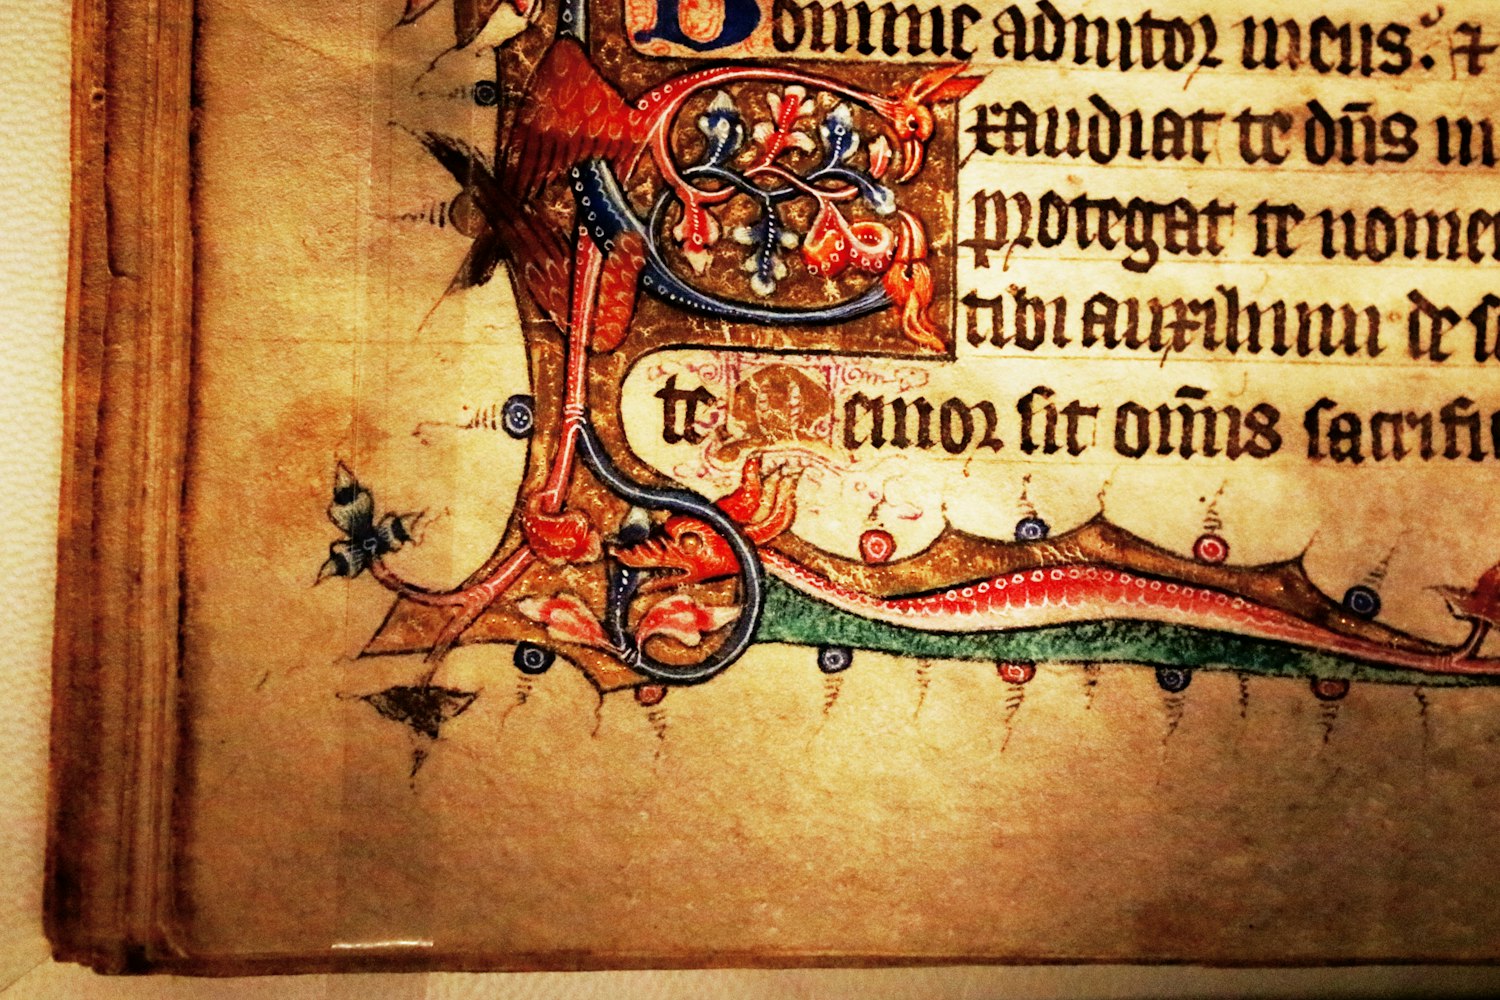 Domine adiutor meus. ⁊
Exaudiat te dn̄s in
protegat te nomen
tibi auxilium de s
te Memor sit om̄is sacrifi